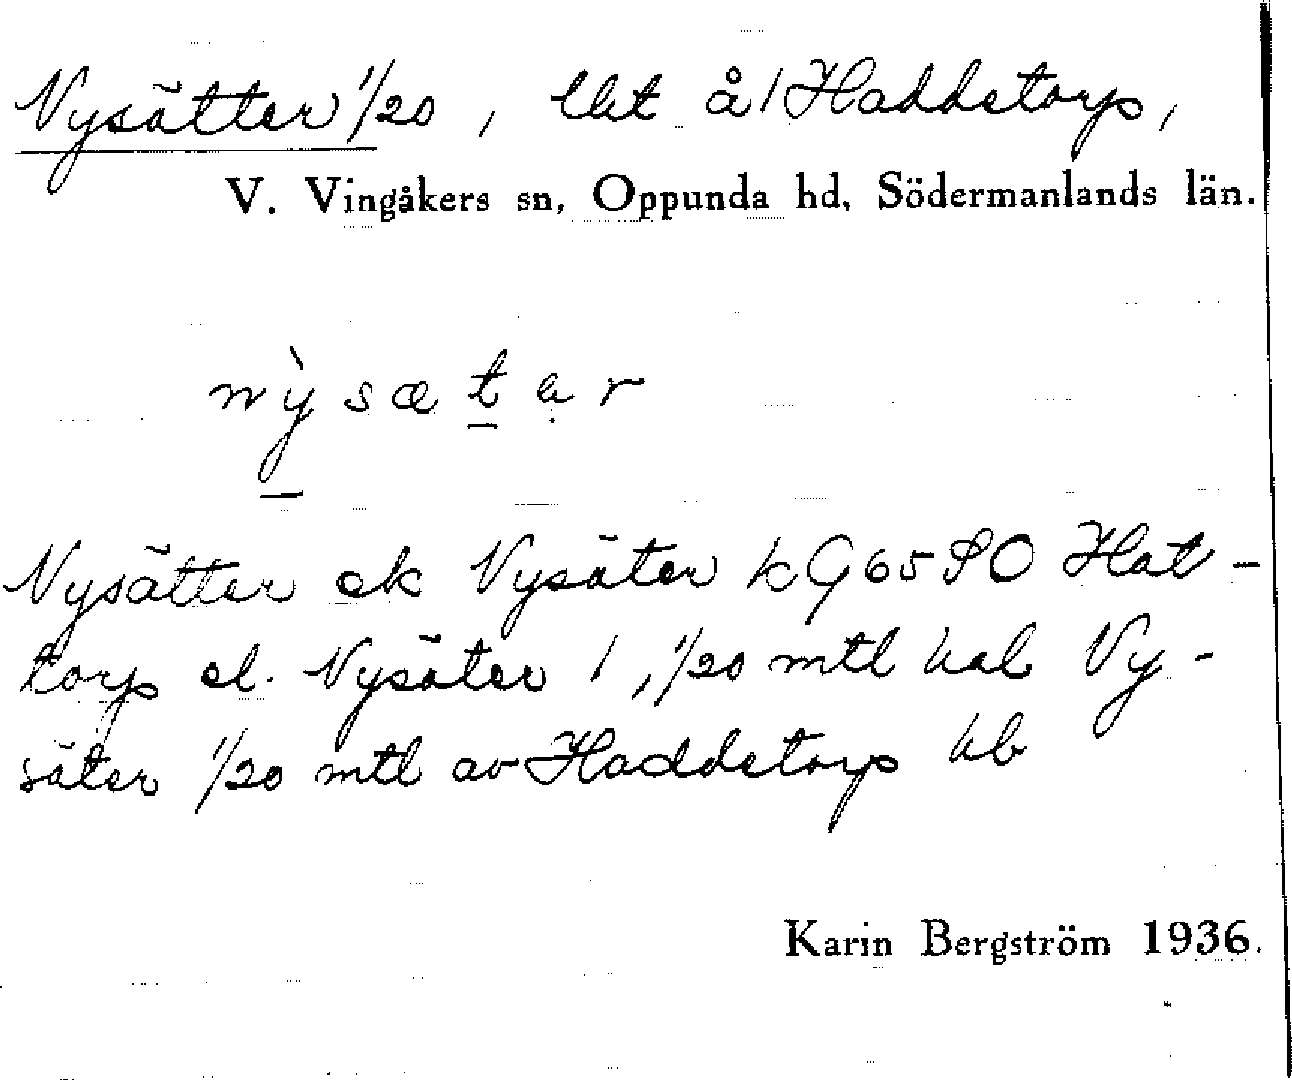 Nysätter 1/20, lht å 1 Haddetorp,
V. Vingåkers sn, Oppunda hd, Södermanlands län.
nỳsætar
Nysätter ek Nysäter kG65SO Hat-
torp el. Nysäter 1, 1/20 mtl hal Ny-
säter 1/20 mtl av Haddetorp kb
Karin Bergström 1936.